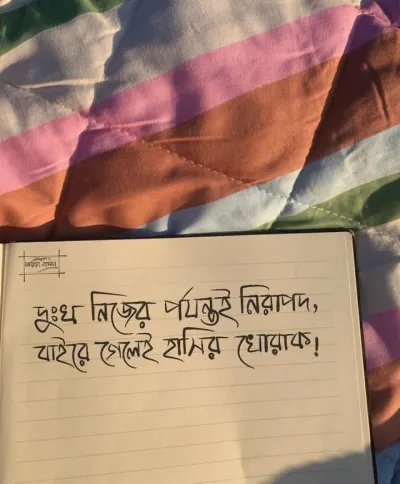 দুঃখ নিজের পর্যন্তই নিরাপদ,
বাইরে গেলেই হাসির খোরাক!